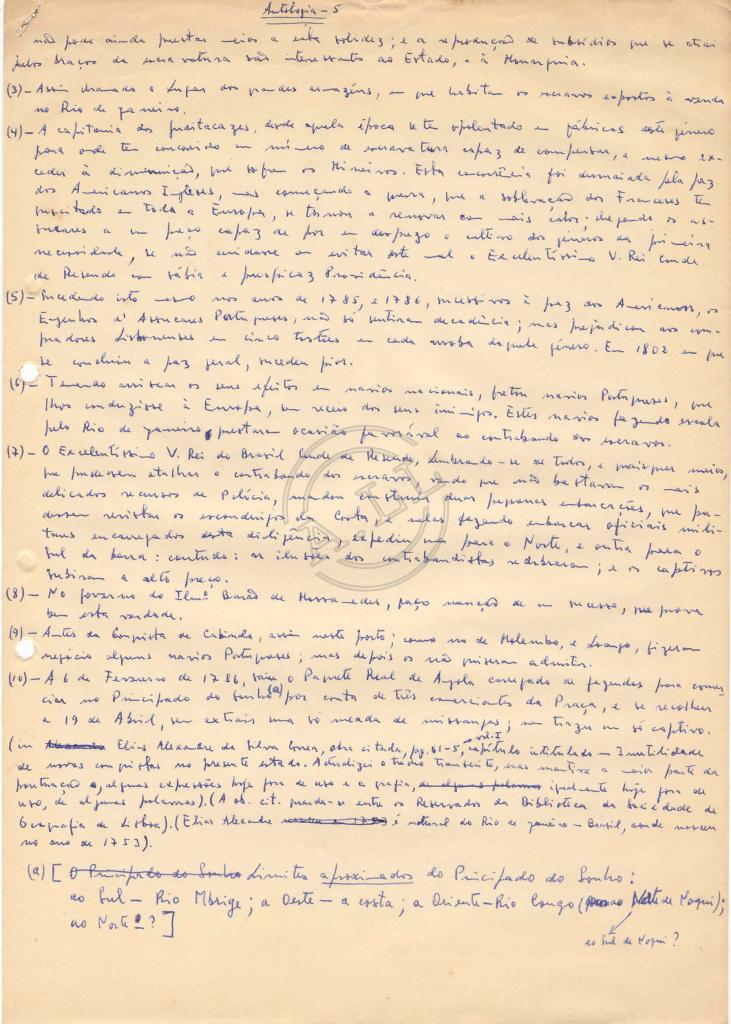 Antologia - 5
não pode ainda prestar meios a esta solidez; e a reprodução de subsídios que se atrai
pelos braços da escravatura são interessantes ao Estado, e à Monarquia.
(3) - Assim chamado o Lugar dos grandes armazéns, em que habitam os escravos expostos à venda
no Rio de Janeiro.
(4) - A capitania dos Guaitacazes, desde aquela época se tem opulentado em fábricas deste género
para onde tem concorrido um número de escravatura capaz de compensar, e mesmo ex-
ceder à diminuição, que sofrem os Mineiros. Esta concorrência foi desmaiada pela paz
dos Americanos Ingleses, mas começando a guerra, que a sublevação dos Franceses tem
suscitado em toda a Europa, se tornou a renovar com mais calor; chegando os as-
sucares a um preço capaz de por em desprezo o cultivo dos géneros da primeira
necessidade, se não cuidasse em evitar este mal o Excelentíssimo V. Rei Conde
de Resende com sábia e perspicaz Providência.
(5) - Sucedendo isto mesmo nos anos de 1785, e 1786, sucessivos à paz dos Americanos, os
Engenhos d'Assucares Portugueses, não só sentiram decadência; mas prejudicam aos com-
pradores Lisbonenses em cinco tostões em cada arroba daquele género. Em 1802 em que
se concluiu a paz geral, sucedeu pior.
(6) - Temendo arriscar os seus efeitos em navios nacionais, fretou navios Portugueses, que
lhos conduzisse à Europa, sem receio dos seus inimigos. Estes navios fazendo escala
pelo Rio de Janeiro, prestaram ocasião favorável ao contrabando dos escravos.
(7) - O Excelentíssimo V. Rei do Brasil Conde de Resende, lembrando-se de todos, e quaisquer meios,
que pudessem atalhar o contrabando dos escravos, vendo que não bastavam os mais
delicados recursos de Polícia, mandou construir duas pequenas embarcações, que pu-
dessem revistar os esconderijos da Costa, e nelas fazendo embarcar oficiais mili-
tares encarregados desta diligência, expediu uma para o Norte, e outra para o
Sul da barra: contudo: as ilusões dos contrabandistas redobraram; e os captivos
subiram a alto preço.
(8) - No governo do Ilmº Barão de Mossamedes, faço menção de um sucesso, que prova
bem esta verdade.
(9) - Antes da Conquista de Cabinda, assim neste porto; como no de Molembo, e Loango, fizeram
negócio alguns navios Portugueses; mas depois os não quiseram admitir.
(10) - A 6 de Fevereiro de 1786, saiu o Paquete Real de Angola carregado de fazendas para comer-
ciar no Principado do Sonho (a) por conta de três comerciantes da Praça, e se recolheu
a 19 de Abril, sem extrair uma só meada de missangas; nem trazer um só captivo.
(in Elias Alexandre da Silva Correa, obra citada, vol. I pg. 61-5, capítulo intitulado - Inutilidade
de novas conquistas no presente estado. Actualizei o trecho transcrito, mas mantive a maior parte da
pontuação e, algumas expressões hoje fora de uso e a grafia, igualmente hoje fora de
uso, de algumas palavras). (A ob. cit. guarda-se entre os Reservados da Biblioteca da Sociedade de
Geografia de Lisboa). (Elias Alexandre é natural do Rio de Janeiro - Brasil, aonde nasceu
no ano de 1753).
(a) [ O Principado do Sonho Limites aproximados do Principado do Sonho:
ao Sul - Rio Mbrige; a Oeste - a costa; a Oriente - Rio Congo ( Norte de Noqui);
ao Norte - ? ]
ao Sul de Noqui?